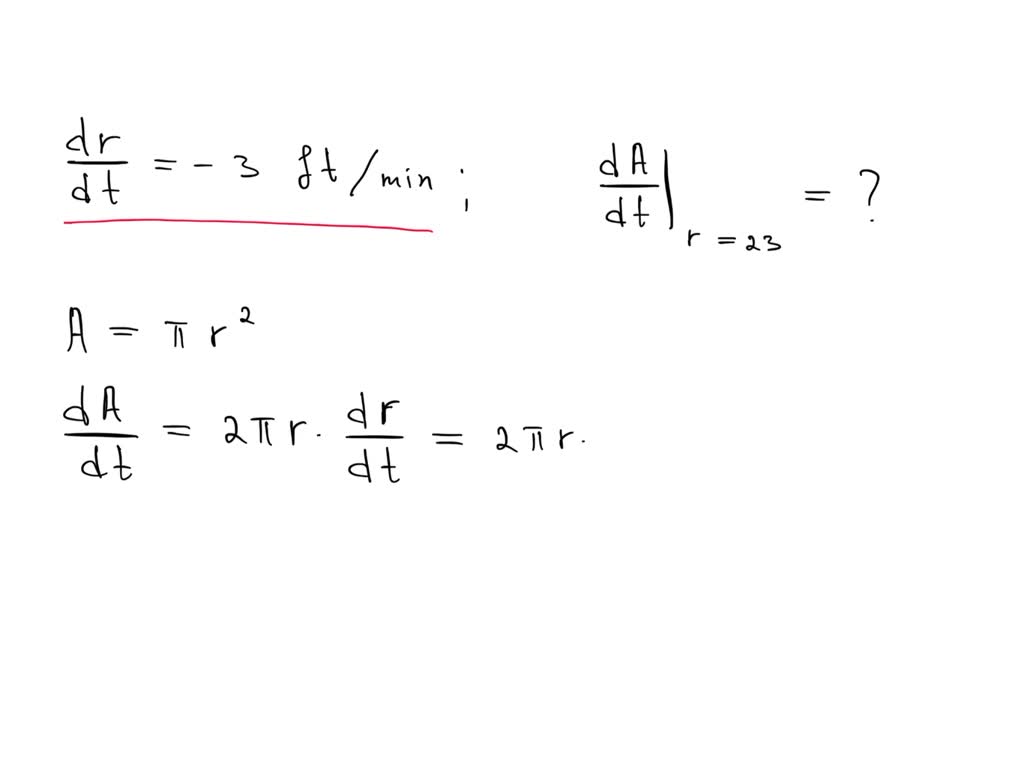 dr/dt = - 3 ft/min ; dA/dt | r = 23 = ?
A = π r²
dA/dt = 2π r · dr/dt = 2π r ·